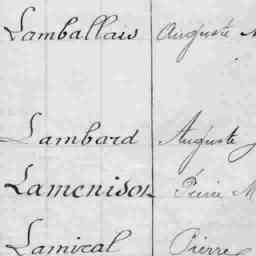 Lamballais Auguste M
Lambard Auguste
Lamenison Pierre M
Lamiral Pierre